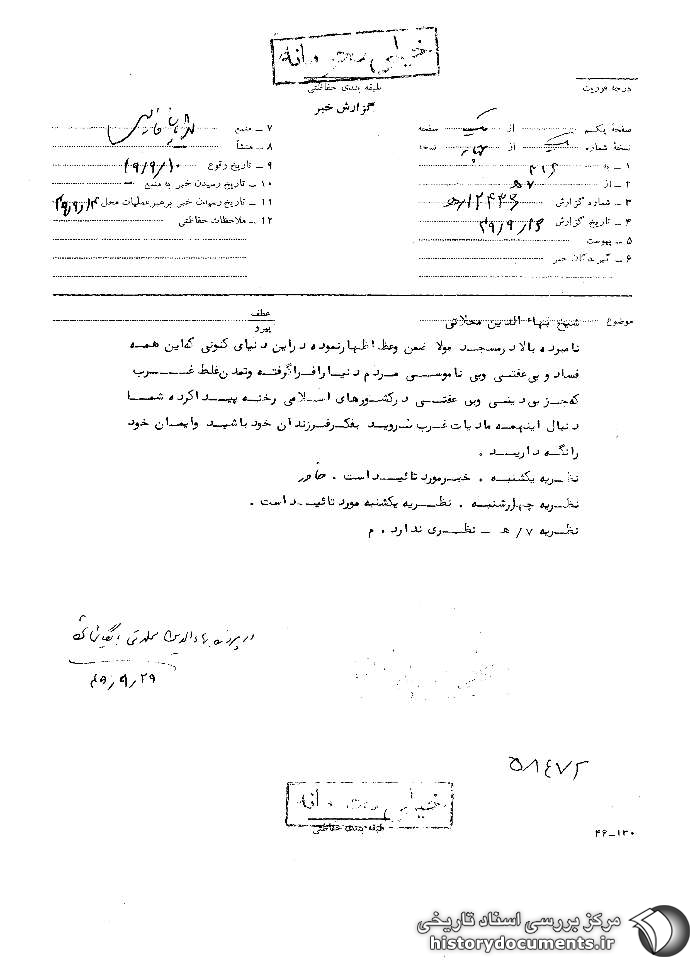 خیلی محرمانه
طبقه بندی حفاظتی
درجه فوریت
گزارش خبر
صفحه یکم از یک صفحه
نسخه شماره یک از چهار نسخه
۱ ـ به ۳۱۶
۲ ـ از ۷ ه‍
۳ ـ شماره گزارش ۱۲۴۴۶/ه‍
۴ ـ تاریخ گزارش ۴۹/۹/۱۶
۵ ـ پیوست
۶ ـ گیرندگان خبر
۷ ـ منبع
۸ ـ منشأ
۹ ـ تاریخ وقوع ۴۹/۹/۱۰
۱۰ ـ تاریخ رسیدن خبر به منبع
۱۱ ـ تاریخ رسیدن خبر برهبر عملیات محل ۴۹/۹/۱۴
۱۲ ـ ملاحظات حفاظتی
موضوع شیخ بهاء الدین محلاتی
عطف
پیرو
نامبرده بالا در مسجد مولا ضمن وعظ اظهار نموده در این دنیای کنونی که این همه
فساد و بی عفتی وبی ناموسی مردم دنیا را فرا گرفته وتمدن غلط غرب
که جز بی دینی وبی عفتی در کشورهای اسلامی رخنه پیدا کرده شما
دنبال اینهمه مادیات غرب نروید بفکر فرزندان خود باشید وایمان خود
را نگه دارید .
نظریه یکشنبه . خبر مورد تائید است . خاور
نظریه چهارشنبه . نظریه یکشنبه مورد تائید است .
نظریه ۷ / ه‍ ـ نظری ندارد . م
در پرونده بهاءالدین محلاتی بایگانی شود
۴۹/۹/۲۹
۵۸۴۷۲
خیلی محرمانه
طبقه بندی حفاظتی
۴۶ـ۱۳۰
مرکز بررسی اسناد تاریخی
historydocuments.ir